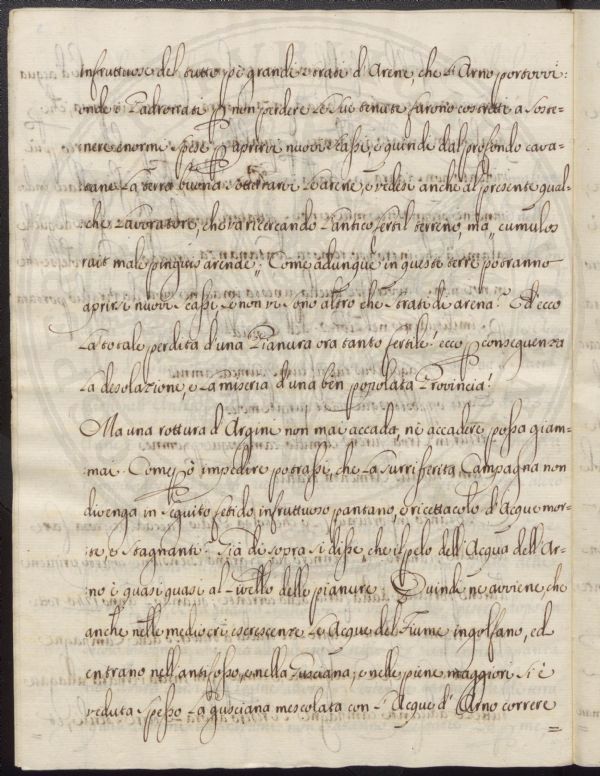 infruttuose del tutto p i grandi strati d'Arene, che l'Arno portovvi:
onde i Padronati p non perdere le sue tenute sarono costretti a soste-
nere enormi spese p aprirvi nuovi cassi, e quindi dal profondo cava-
tane la terra buona sotterrarvi le arene, e vedesi anche al presente qual-
che Lavoratore, che và ricercando l'antico fertil terreno, ma „ cumulos
ruit male pinguis arenæ „ Come adunque in queste terre potranno
aprirsi nuovi cassi se non vi sono altro che strati di arena? Ed ecco
la totale perdita d'una Pianura ora tanto fertile: ecco p conseguenza
la desolazione, e la miseria d'una ben popolata Provincia.
Ma una rottura d'Argine non mai accada, nè accadere possa giam-
mai. Come p ò impedire potrassi, che la surriferita Campagna non
divenga in seguito fetido, infruttuoso pantano, e ricettacolo d'Acque mor-
te, e stagnanti? Già di sopra si disse, che il pelo dell'Acqua dell'Ar-
no è quasi quasi al livello delle pianure. Quindi ne avviene, che
anche nelle mediocri escrescenze le Acque del Fiume ingolfano, ed
entrano nell'antifosso, e nella Gusciana, e nelle piene maggiori si è
veduta spesso la Gusciana mescolata con l'Acque d'Arno correre